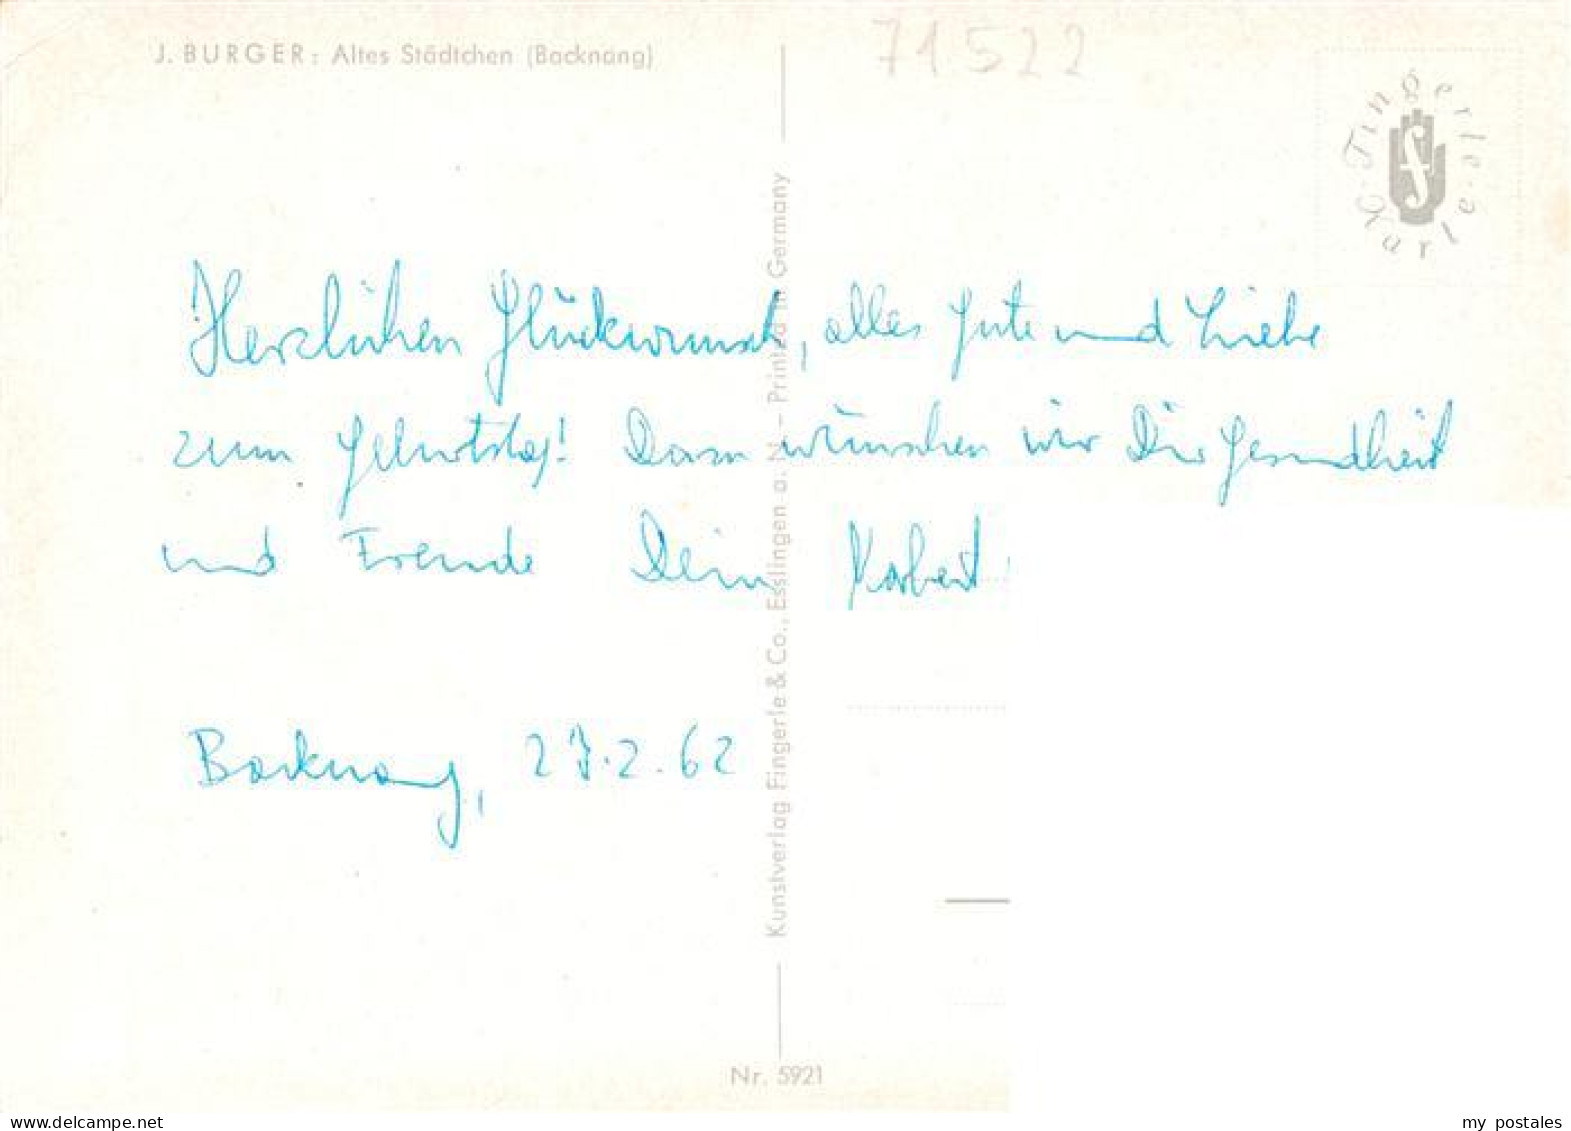 J. BURGER: Altes Städtchen (Backnang)
71522
Fingerle-Karte
Herzlichen Glückwunsch, alles Gute und Liebe
zum Geburtstag! Dazu wünschen wir Dir Gesundheit
und Freude Dein
Backnang, 27.2.62
Kunstverlag Fingerle & Co., Esslingen a. N. – Printed in Germany
Nr. 5921
www.delcampe.net
my postales